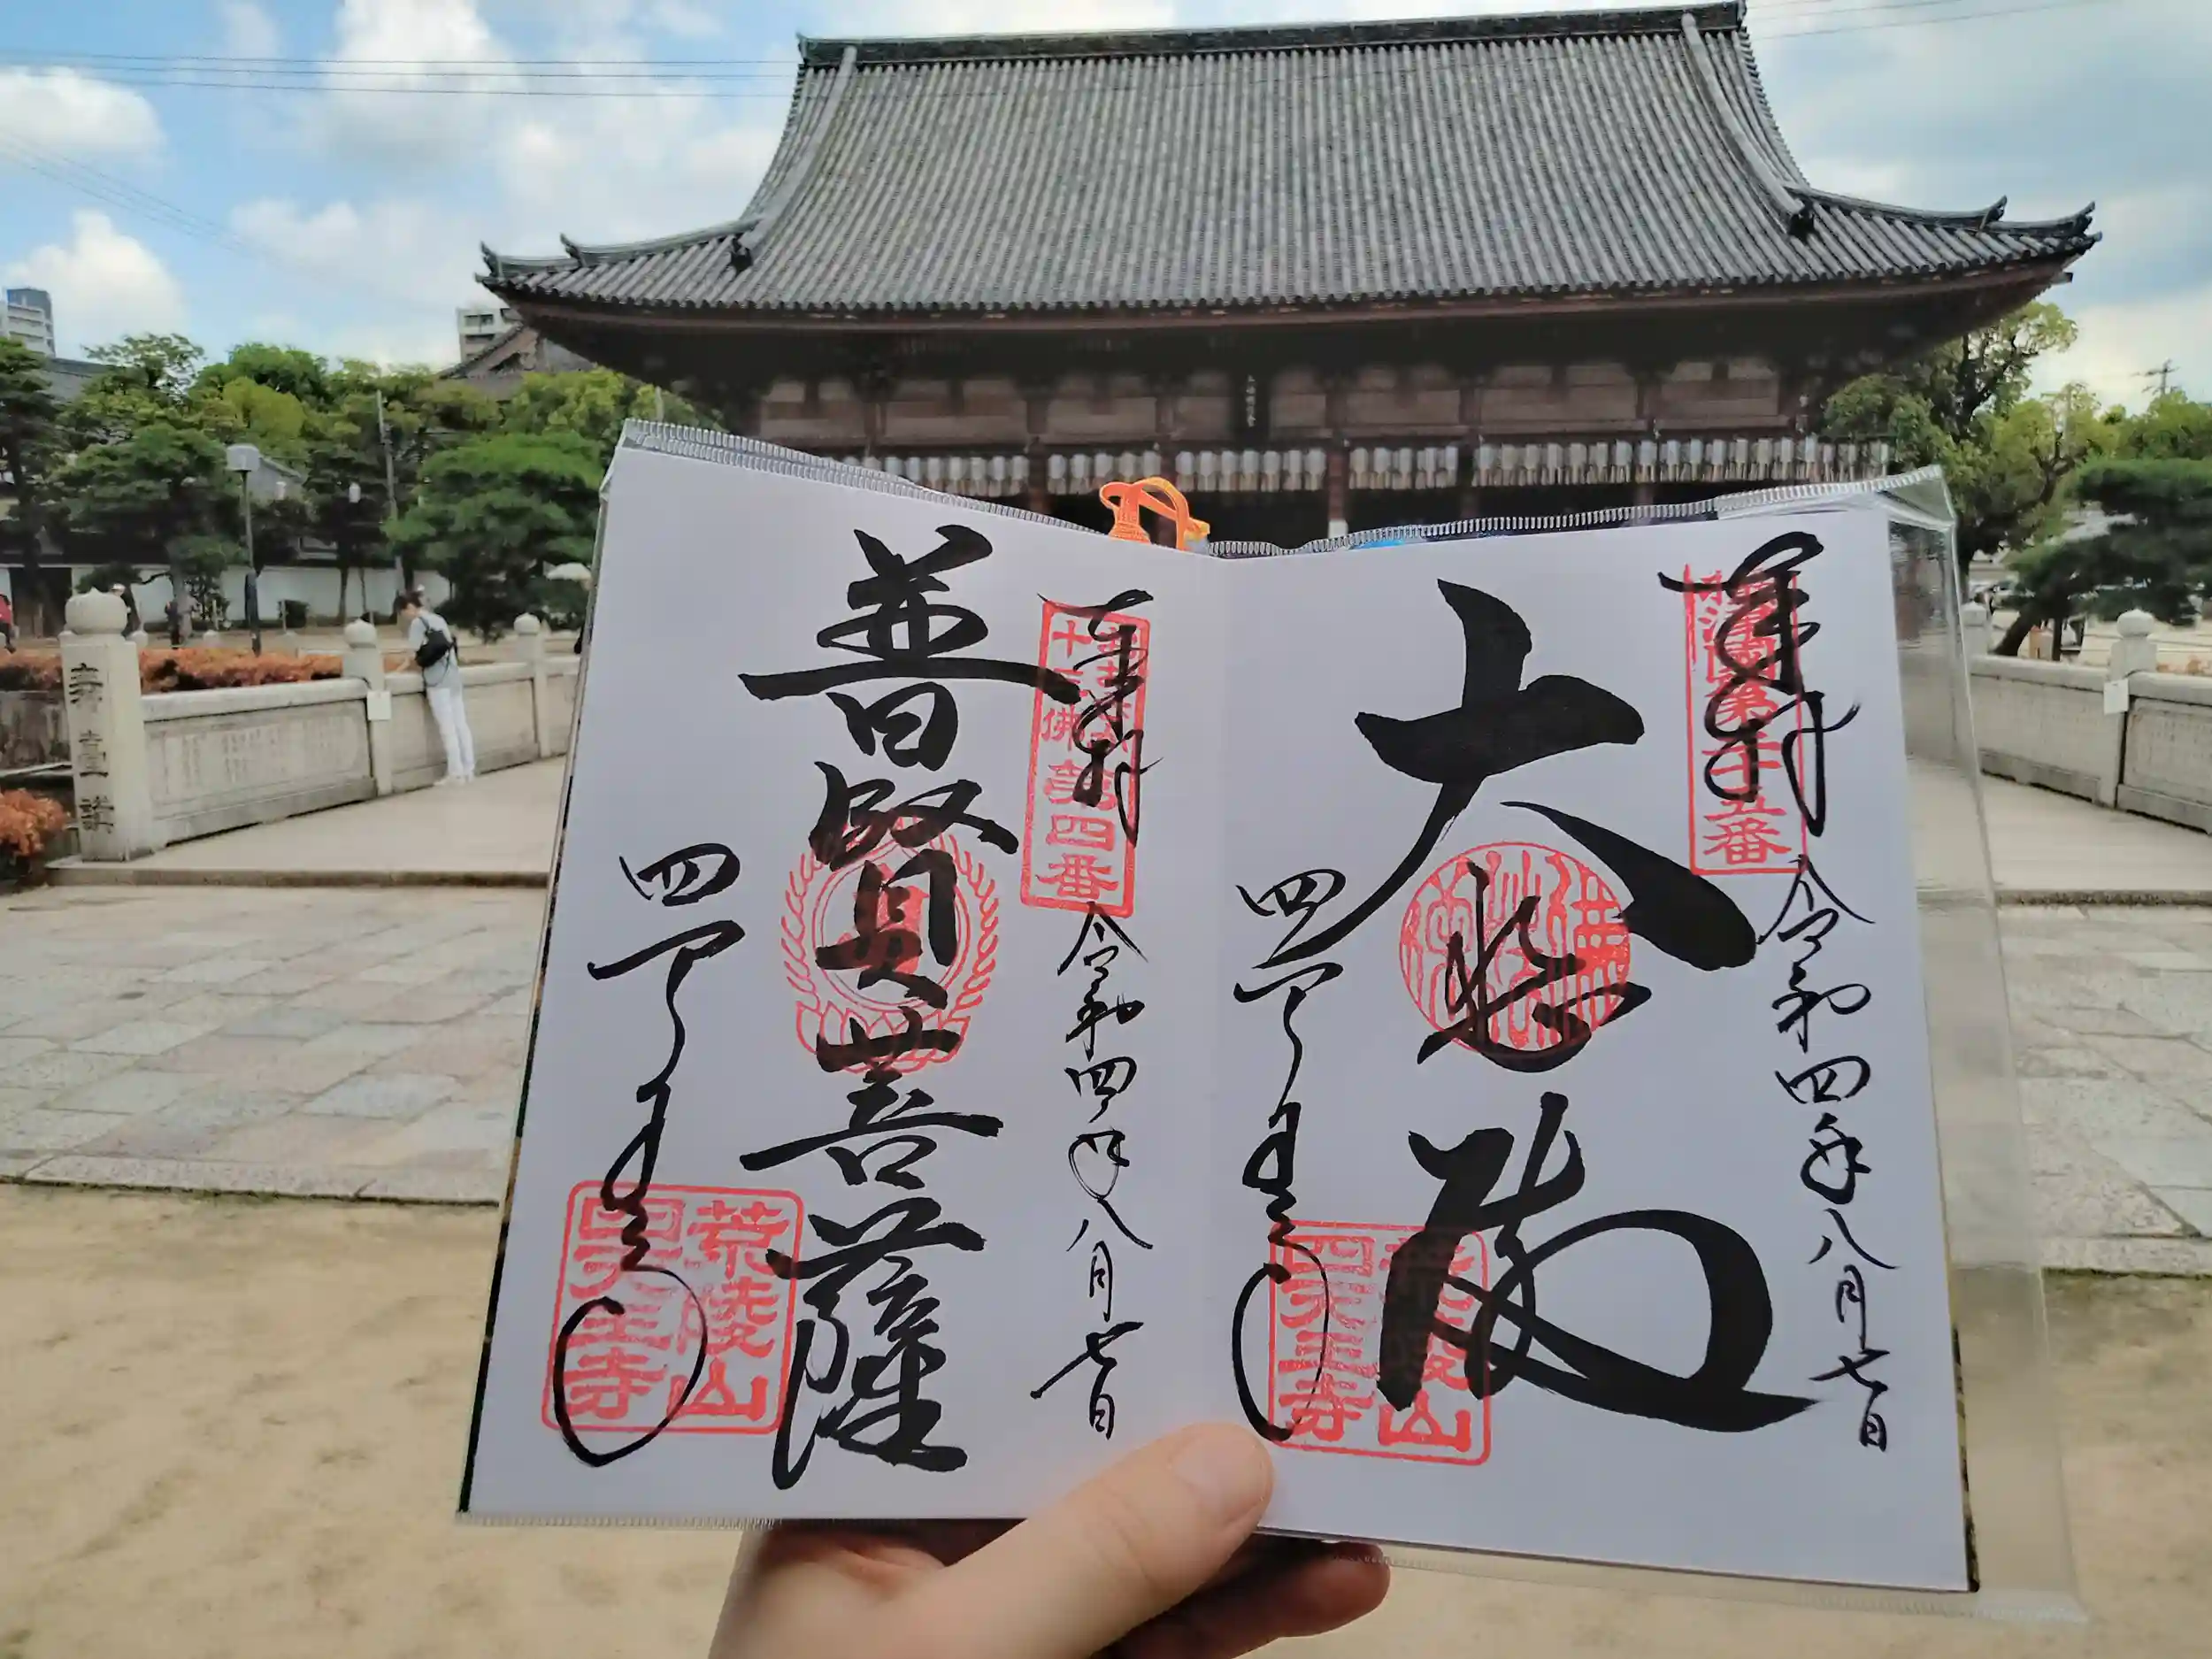 奉拝
令和四年八月七日
大悲殿
四天王寺
荒陵山
四天王寺
奉拝
十三佛第四番
令和四年八月七日
普賢菩薩
四天王寺
荒陵山
四天王寺